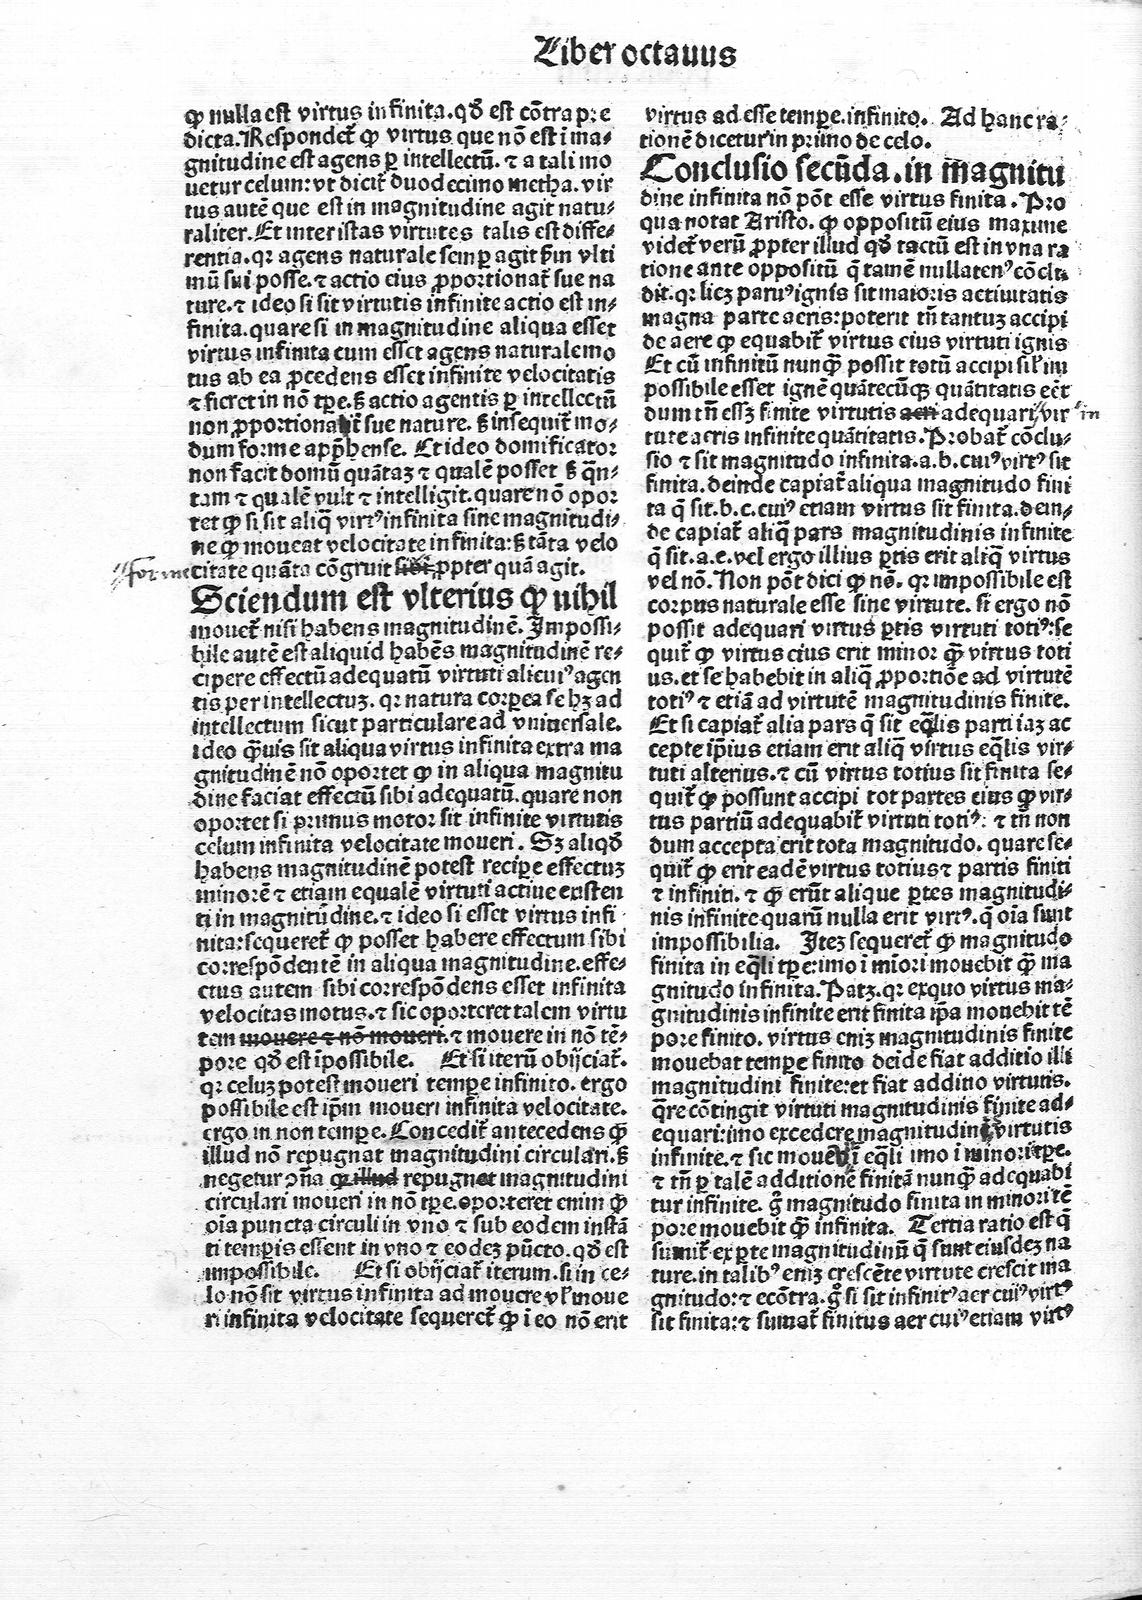 Liber octauus
ꝙ nulla est virtus infinita. qđ est cõtra pre
dicta. Respondet̃ ꝙ virtus que nõ est ĩ ma⸗
gnitudine est agens ꝑ intellectũ. ⁊ a tali mo
uetur celum: vt dicit̃ duodecimo metha. vir
tus autẽ que est in magnitudine agit natu⸗
raliter. Et inter istas virtutes talis est diffe⸗
rentia. qꝛ agens naturale semꝑ agit ẜm vlti
mũ sui posse. ⁊ actio eius ꝓportionat̃ sue na
ture. ⁊ ideo si sit virtutis infinite actio est in⸗
finita. quare si in magnitudine aliqua esset
virtus infinita cum esset agens naturale mo
tus ab ea ꝓcedens esset infinite velocitatis
⁊ fieret in nõ tꝑe. ꝫ actio agentis ꝑ intellectũ
non ꝓportionat̃ sue nature. ꝫ insequit̃ mo⸗
dum forme app̃hense. Et ideo domificator
non facit domũ quãtaꝫ ⁊ qualẽ posset ꝫ q̃n⸗
tam ⁊ qualẽ vult ⁊ intelligit. quare nõ opor
tet ꝙ si sit aliq̃ virtꝰ infinita sine magnitudi⸗
ne ꝙ moueat velocitate infinita: ꝫ tãta velo
forme citate quãta cõgruit sibi ꝓpter quã agit.
Sciendum est vlterius ꝙ nihil
mouet̃ nisi habens magnitudinẽ. Impossi⸗
bile autẽ est aliquid habẽs magnitudinẽ re⸗
cipere effectũ adequatũ virtuti alicuiꝰ agen
tis per intellectuꝫ. qꝛ natura corꝑea se hꝫ ad
intellectum sicut particulare ad vniuersale.
ideo q̃uis sit aliqua virtus infinita extra ma
gnitudinẽ nõ oportet ꝙ in aliqua magnitu
dine faciat effectũ sibi adequatũ. quare non
oportet si primus motor sit infinite virtutis
celum infinita velocitate moueri. Sꝫ aliqđ
habens magnitudinẽ potest reciꝑe effectuꝫ
minorẽ ⁊ etiam equalẽ virtuti actiue existen
ti in magnitudine. ⁊ ideo si esset virtus infi
nita: sequeret̃ ꝙ posset habere effectum sibi
correspõdentẽ in aliqua magnitudine. effe⸗
ctus autem sibi correspõdens esset infinita
velocitas motus. ⁊ sic oporteret talem virtu
tem mouere ⁊ nõ moueri. ⁊ mouere in nõ tẽ⸗
pore qđ est ĩpossibile. Et si iterũ obijciat̃.
qꝛ celuꝫ potest moueri temꝑe infinito. ergo
possibile est ip̃m moueri infinita velocitate.
ergo in non temꝑe. Concedit̃ antecedens ꝙ
illud nõ repugnat magnitudini circulari. ꝫ
negetur ꝯña ꝙ illud repugnet magnitudini
circulari moueri in nõ tꝑe. oporteret enim ꝙ
oĩa puncta circuli in vno ⁊ sub eodem instã
ti temꝑis essent in vno ⁊ eodeꝫ pũcto. qđ est
impossibile. Et si obijciat̃ iterum. si in ce⸗
lo nõ sit virtus infinita ad mouere vl̃ moue
ri infinita velocitate sequeret̃ ꝙ ĩ eo nõ erit
virtus ad esse temꝑe. infinito. Ad hanc ra⸗
tionẽ dicetur in primo de celo.
Conclusio secũda. in magnitu
dine infinita nõ põt esse virtus finita. Pro
qua notat Aristo. ꝙ oppositũ eius maxime
videt̃ verũ ꝓpter illud qđ tactũ est in vna ra
tione ante oppositũ q̃ tamẽ nullatenꝰ cõclu
dit. qꝛ licꝫ paruꝰ ignis sit maioris actiuitatis
magna parte aeris: poterit tñ tantuꝫ accipi
de aere ꝙ equabit̃ virtus eius virtuti ignis
Et cũ infinitũ nunq̃ possit totũ accipi sil̃ im
possibile esset ignẽ quãtecũqꝫ quãtitatis eẽt
dum tñ essꝫ finite virtutis aeri adequari vir in
tute aeris infinite quãtitatis. Probat̃ cõclu⸗
sio ⁊ sit magnitudo infinita. a. b. cuiꝰ virtꝰ sit
finita. deinde capiat̃ aliqua magnitudo fini
ta q̃ sit. b. c. cuiꝰ etiam virtus sit finita. dein⸗
de capiat̃ aliq̃ pars magnitudinis infinite
q̃ sit. a. e. vel ergo illius ꝑtis erit aliq̃ virtus
vel nõ. Non põt dici ꝙ nõ. qꝛ impossibile est
corpus naturale esse sine virtute. si ergo nõ
possit adequari virtus ꝑtis virtuti totiꝰ: se
quit̃ ꝙ virtus eius erit minor q̃ virtus toti
us. et se habebit in aliq̃ ꝓportiõe ad virtutẽ
totiꝰ ⁊ etiã ad virtutẽ magnitudinis finite.
Et si capiat̃ alia pars q̃ sit eq̃lis parti iaꝫ ac
cepte ip̃ius etiam erit aliq̃ virtus eq̃lis vir⸗
tuti alterius. ⁊ cũ virtus totius sit finita se⸗
quit̃ ꝙ possunt accipi tot partes eius ꝙ vir⸗
tus partiũ adequabit̃ virtuti totiꝰ. ⁊ tñ non
dum accepta erit tota magnitudo. quare se⸗
quit̃ ꝙ erit eadẽ virtus totius ⁊ partis finiti
⁊ infiniti. ⁊ ꝙ erũt alique ꝑtes magnitudi⸗
nis infinite quarũ nulla erit virtꝰ. q̃ oĩa sunt
impossibilia. Iteꝫ sequeret̃ ꝙ magnitudo
finita in eq̃li tꝑe: imo ĩ miori mouebit q̃ ma
gnitudo infinita. Patꝫ. qꝛ exquo virtus ma⸗
gnitudinis infinite erit finita ip̃a mouebit tẽ
pore finito. virtus eniꝫ magnitudinis finite
mouebat temꝑe finito deĩde fiat additio illi
magnitudini finite: et fiat additio virtutis.
q̃re cõtingit virtuti magnitudinis finite ad⸗
equari: imo excedere magnitudinis virtutis
infinite. ⁊ sic mouebit ĩ eq̃li imo ĩ minori tꝑe.
⁊ tñ ꝑ talẽ additionẽ finitã nunq̃ adequabi
tur infinite. g̃ magnitudo finita in minori tẽ
pore mouebit q̃ infinita. Tertia ratio est q̃
sumit̃ ex ꝑte magnitudinũ q̃ sunt eiusdeꝫ na
ture. in talibꝰ eniꝫ crescẽte virtute crescit ma
gnitudo: ⁊ ecõtra. g̃ si sit infinitꝰ aer cuiꝰ virtꝰ
sit finita: ⁊ sumat̃ finitus aer cuiꝰ etiam virtꝰ